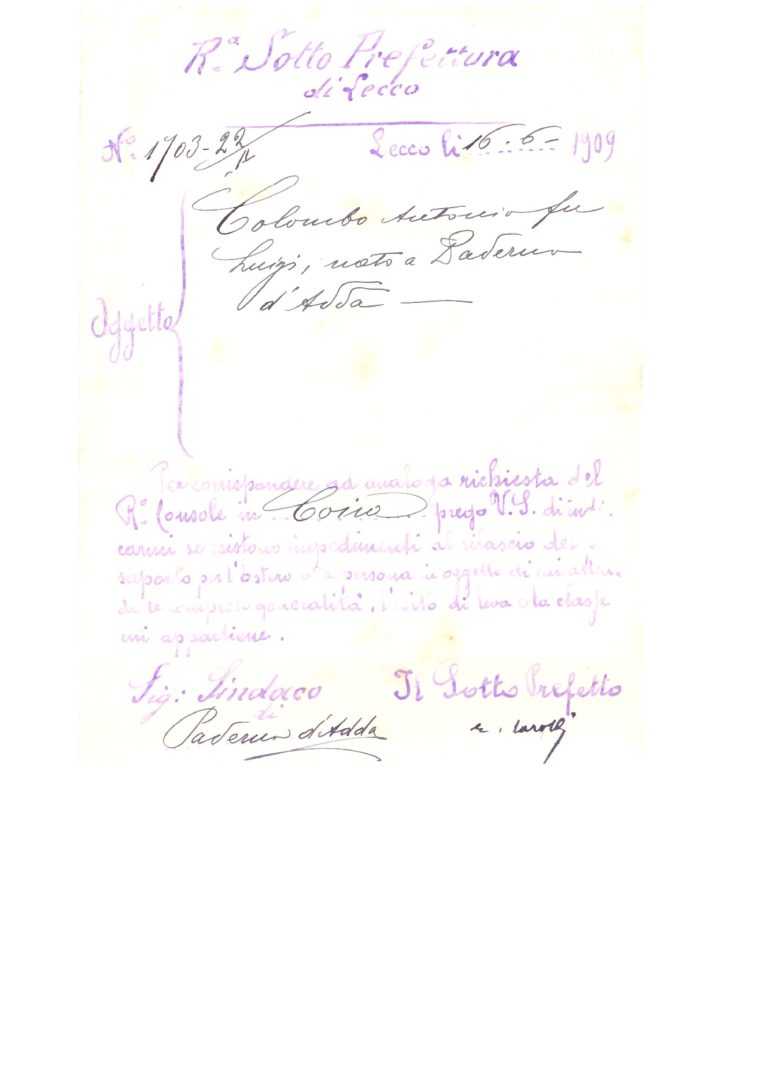 R.ª Sotto Prefettura
di Lecco
N.º 1703-22 Lecco li 16.6- 1909
Oggetto
Colombo Antonio fu
Luigi, nato a Paderno
d'Adda —
Per corrispondere ad analoga richiesta del
R.º Console in Coira prego V.S. di indi-
carmi se esistono impedimenti al rilascio del
saporto per l'estero alla persona in oggetto di cui atten-
de le complete generalità, l'esito di leva e la classe
cui appartiene.
Sig: Sindaco Il Sotto Prefetto
di
Paderno d'Adda